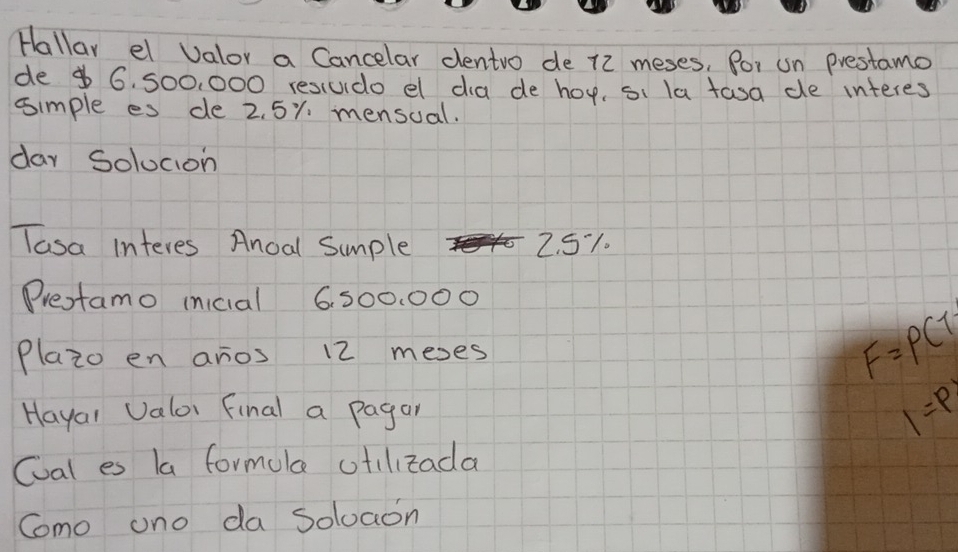 Hallar el Valor a Cancelar dentro de 12 meses, Por un prestamo
de $ 6.500.000 resivido el dia de hoy, si la tasa de interes
simple es de 2.5% mensual.
dar Solucion
Tasa interes Anual Simple 2.5%
Prestamo inicial 6.500.000
Plazo en años 12 meses
Hayar Valor Final a pagar
Cual es la formula utilizada
Como uno da Solucion
F=P(1
I=P